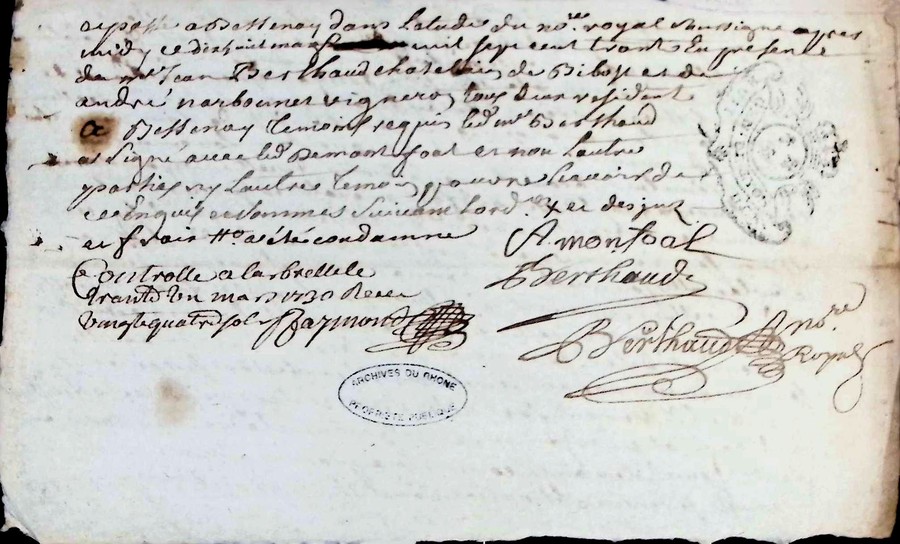 a Bessenay dans l'etude du no.re royal soussigne apres
midy ce dixhuit mars mil sept cent trante En presence
de m.e Jean Berthaud chatellain de Bibost et de
andré narbonnet vigneron tous deux resident
a Bessenay temoins requis led m.e Berthaud
a signé avec led Demontfoat et non l'autre
partie ny l'autre temoin pour ne sçavoir de
ce Enquis et sommes suivant l'ord.
et
condamne
Controlle a larbrelle le
trante Un mars 1730 Receu
vingt quatre sols Raymond
A monfoat
Berthaud
Berthaud no.re
Royal
ARCHIVES DU RHONE
PROPRIETE PUBLIQUE